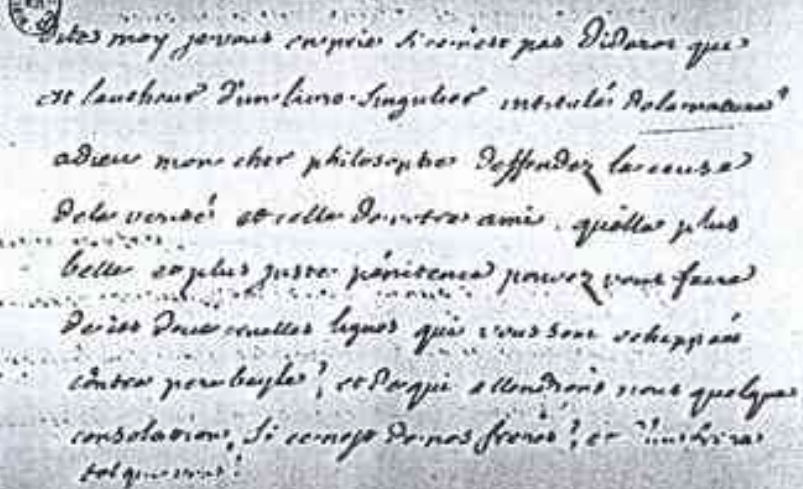 dites moy je vous en prie si ce n'est pas Diderot qui
est lautheur d'un livre singulier intitulé de la nature?
adieu mon cher philosophe deffendez la cause
de la verité et celle de votre ami. quelle plus
belle et plus juste pénitence pouvez vous faire
de ces deux cruelles lignes qui vous sont echappées
contre bayle? et de qui attendrons nous quelque
consolation, si ce n'est de nos freres? et frere
tel que vous!